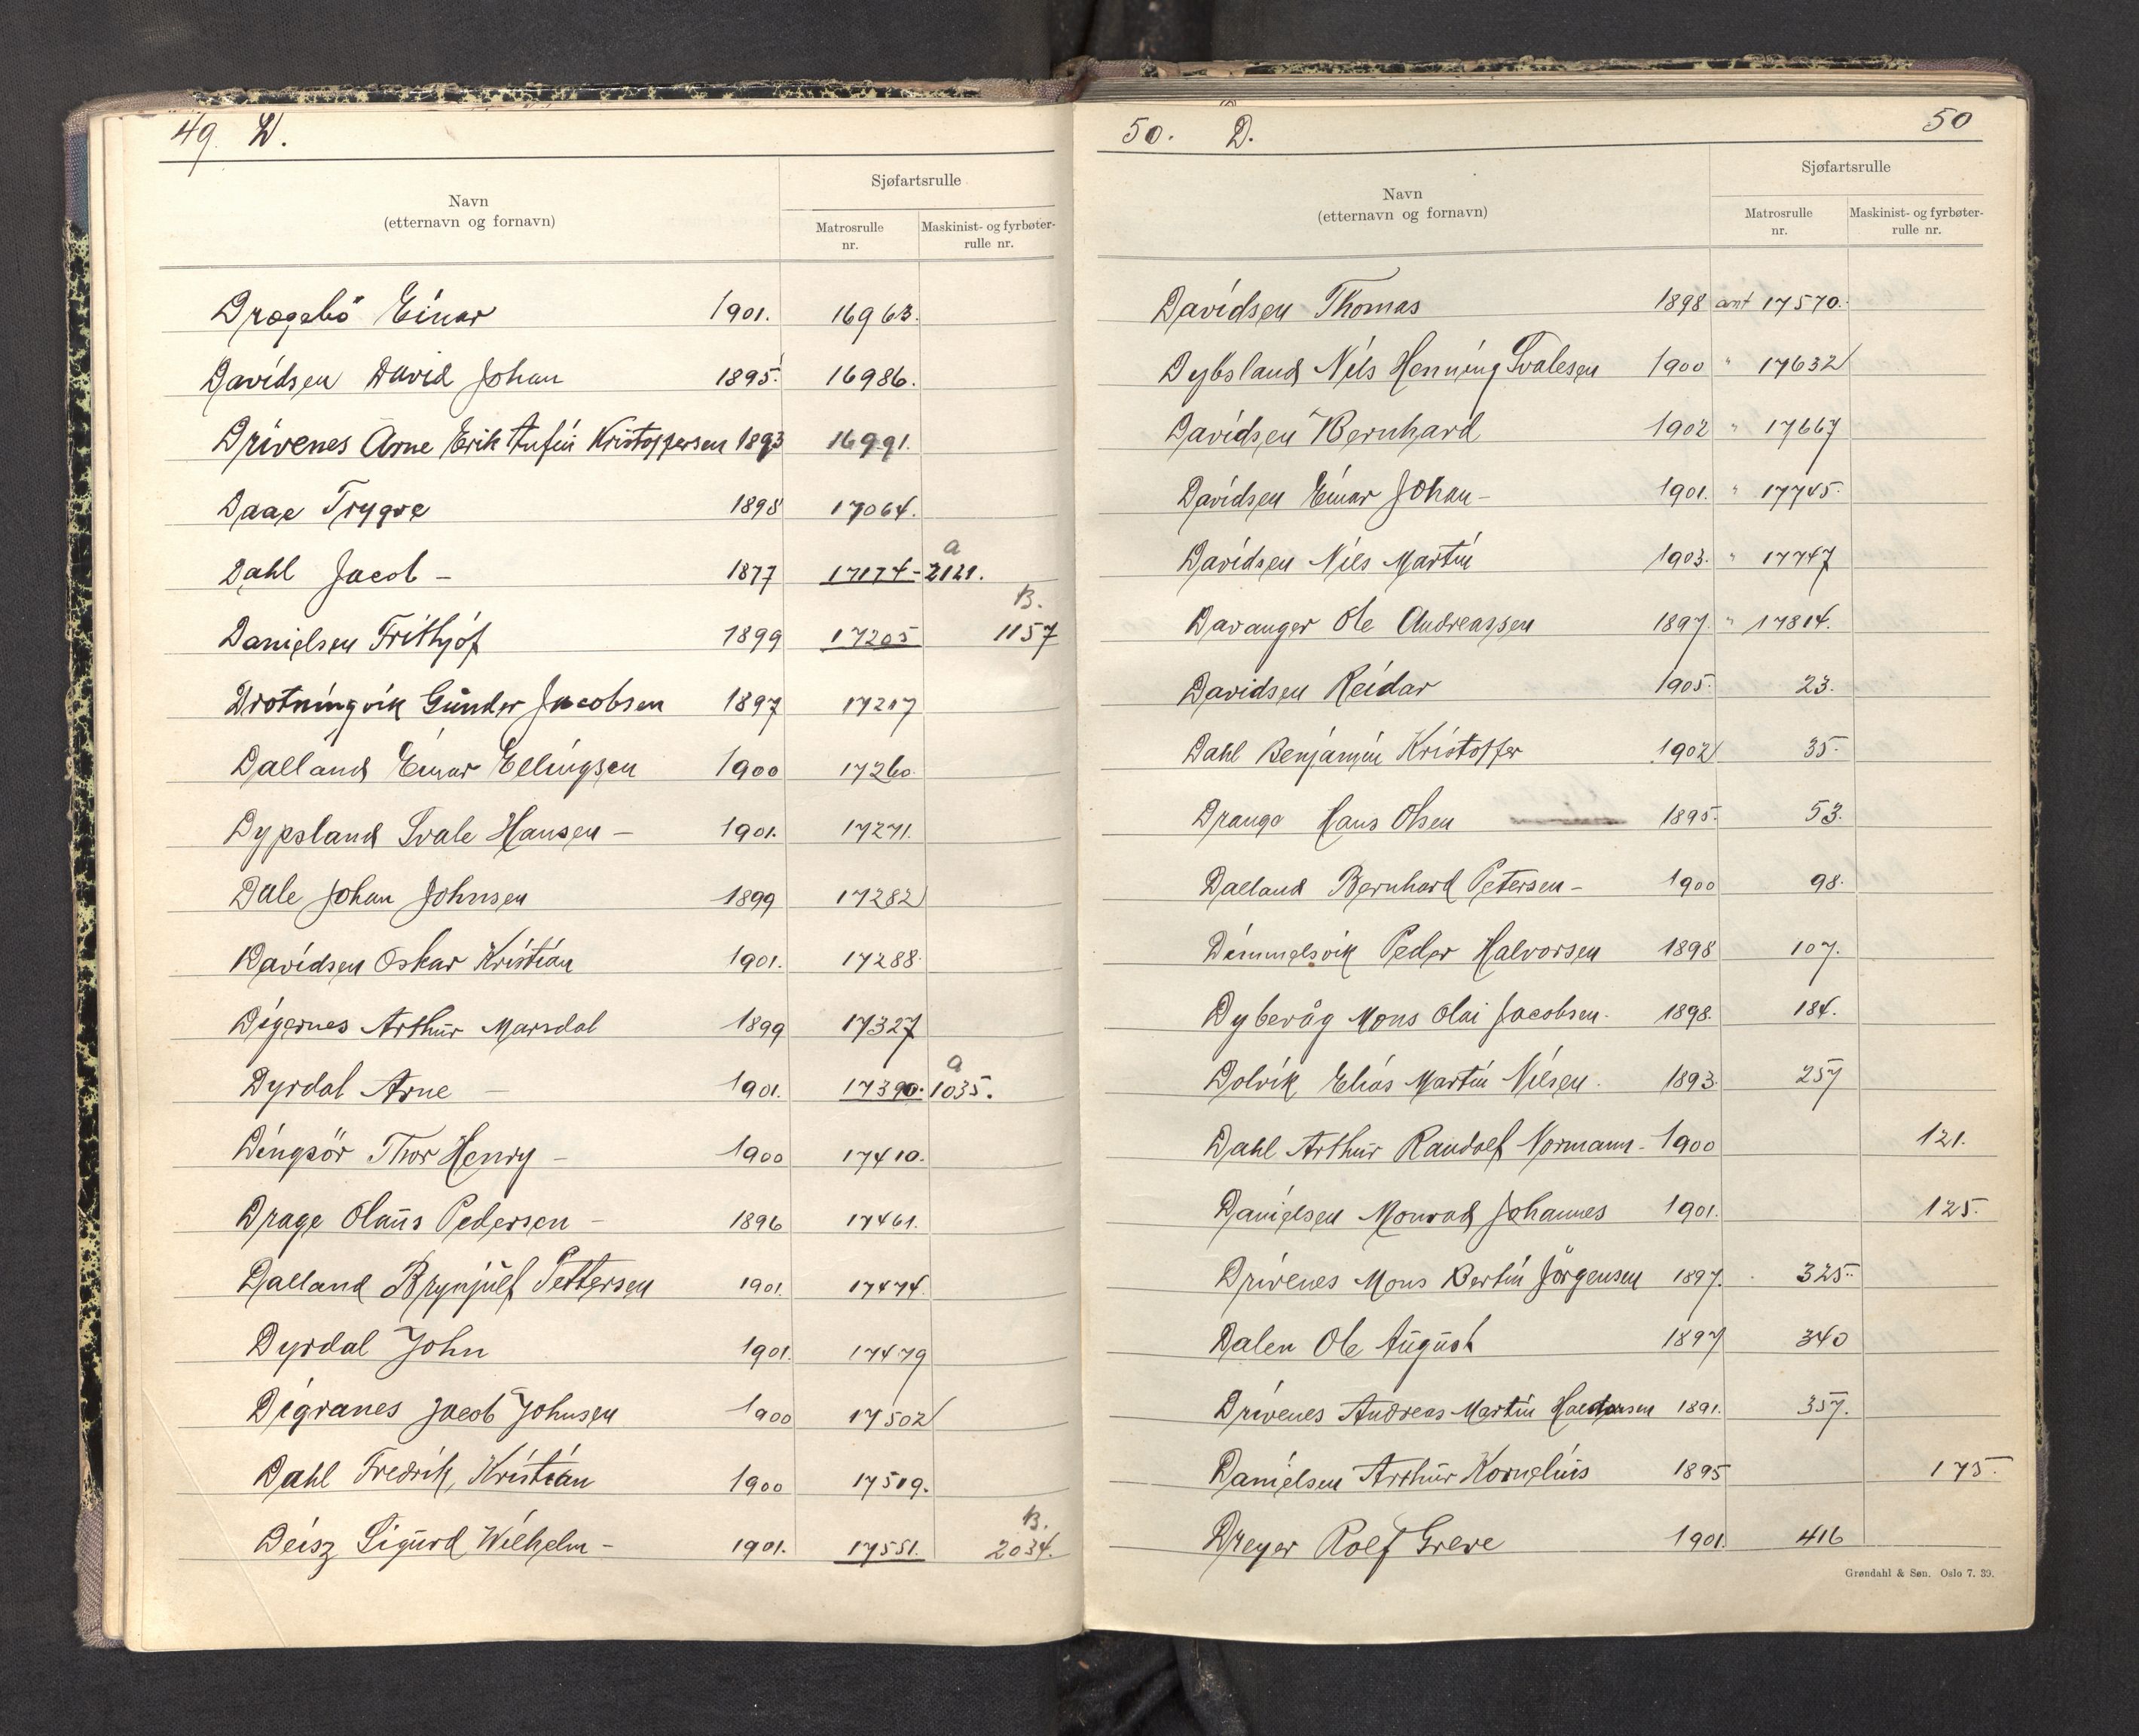 49. D.
Navn
(etternavn og fornavn)
Sjøfartsrulle
Matrosrulle
nr.
Maskinist- og fyrbøter-
rulle nr.
Dragebö Einar 1901. 16963.
Davidsen David Johan 1895. 16986.
Drivenes Arne Erik Anfin Kristoffersen 1893 16991.
Daae Trygve 1898 17064.
Dahl Jacob – 1877 17174 - a 2121.
Danielsen Frithjof 1899 17205 B. 1157
Drotningvik Gunder Jacobsen 1897 17217
Dalland Einar Ellingsen 1900 17260.
Dypsland Svale Hansen – 1901. 17271.
Dale Johan Johnsen 1899 17282
Davidsen Oskar Kristian 1901. 17288
Digernes Arthur Marsdal 1899 17327
Dyrdal Arne – 1901. 17390. a 1035.
Dingsör Thor Henry – 1900 17410.
Drage Olaus Pedersen – 1896 17461.
Dalland Brynjulf Pettersen 1901. 17474.
Dyrdal John 1901. 17479
Digranes Jacob Johnsen 1900 17502
Dahl Fredrik Kristian 1900 17519.
Deisz Sigurd Wilhelm – 1901. 17551. B. 2034.
50. D. 50
Navn
(etternavn og fornavn)
Sjøfartsrulle
Matrosrulle
nr.
Maskinist- og fyrbøter-
rulle nr.
Davidsen Thomas 1898 ant 17570.
Dybsland Nils Henning Svalesen 1900 " 17632
Davidsen Bernhard 1902 " 17667
Davidsen Einar Johan – 1901. " 17745.
Davidsen Nils Martin 1903. " 17747
Davanger Ole Andreassen 1897. " 17814.
Davidsen Reidar 1905. 23.
Dahl Benjamin Kristoffer 1902 35.
Drange Hans Olsen 1895. 53.
Dalland Bernhard Petersen – 1900 98.
Dimmelsvik Peder Halvorsen 1898 107.
Dybevåg Mons Olai Jacobsen. 1898. 184.
Dolvik Elias Martin Nilsen. 1893. 257
Dahl Arthur Randolf Normann – 1900 121.
Danielsen Monrad Johannes 1901. 125.
Drivenes Mons Bertin Jörgensen 1897. 325.
Dalen Ole August 1897 340
Drivenes Andreas Martin Haldorsen 1891. 357.
Danielsen Arthur Kornelius 1895 175.
Dreyer Rolf Greve 1901. 416
Grøndahl & Søn. Oslo 7. 39.